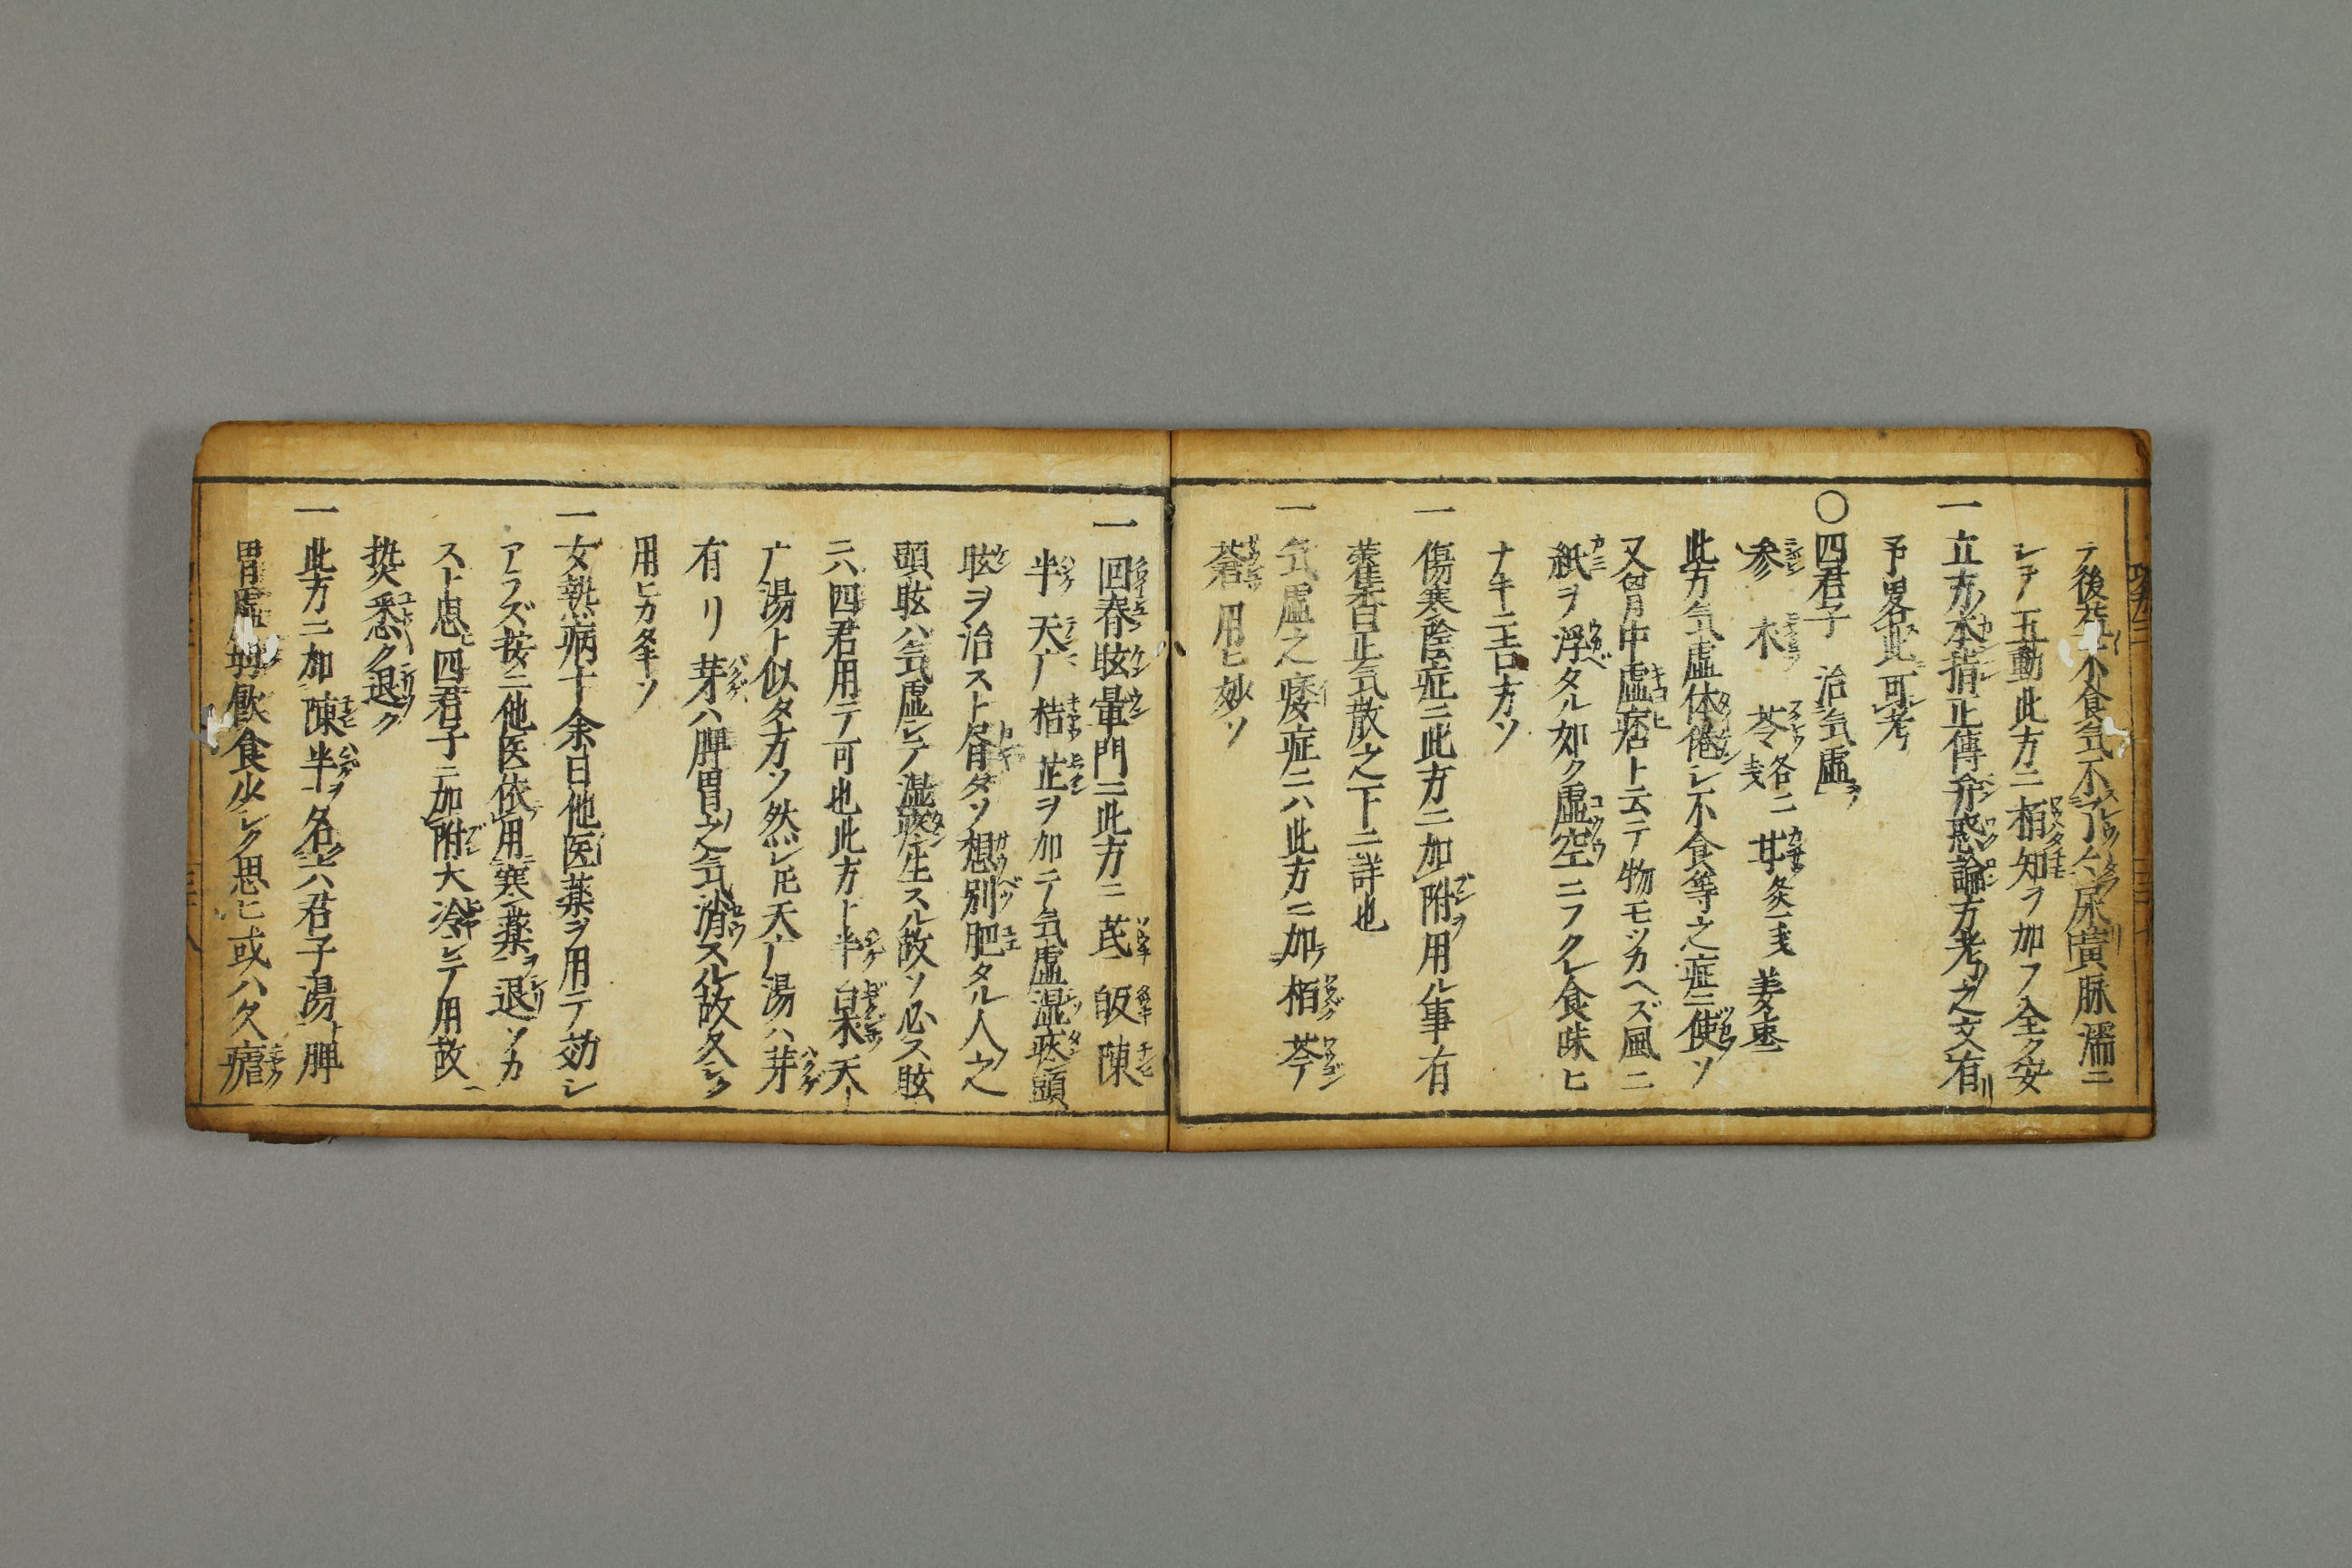 テ後甚不食気不了々尿黄脉濡ニ
レテ五動此方ニ栢知ヲ加フ全ク安
一立方本指正傳弁惑論方考之文有リ
予畧此可考
○四君子 治気虚ヲ
参 朮 苓各二戔 甘灸一戔 姜棗
此方気虚休倦レ不食等之症ニ使ソ
又胃中虚痞ト云テ物モツカヘズ風ニ
紙ヲ浮タル如ク虚空ニフクレ食味ヒ
ナキニ吉方ソ
一傷寒陰症ニ此方ニ加附ヲ用ル事有
藿香正気散之下ニ詳也
一気虚之痿症ニハ此方ニ加栢 芩
蒼 用ヒ妙ソ
一回春眩暈門ニ此方ニ芪 皈 陳
半 天广 桔 芷ヲ加ニテ気虚湿痰頭
眩ヲ治スト有ダソ想別肥タル人之
頭眩ハ気虚レテ湿痰生スル故ソ必ス眩
ニ六四君用テ可也此方ト半白朮天ト
广湯ト似タ方ソ然レ𪜈天广湯ハ芽
有リ 芽ハ脾胃之気消スル故久レク
用ヒカタキソ
一女熱病十余日他医薬ヲ用テ効レ
アラズ按ニ他医依用寒薬ヲ退ソカ
スト思四君子ニ加附大冷レテ用故ニ
熒悉ク退ク
一此方ニ加陳半ヲ名六君子湯ト脾
胃虚弱飲食少レク思ヒ或ハ久瘧